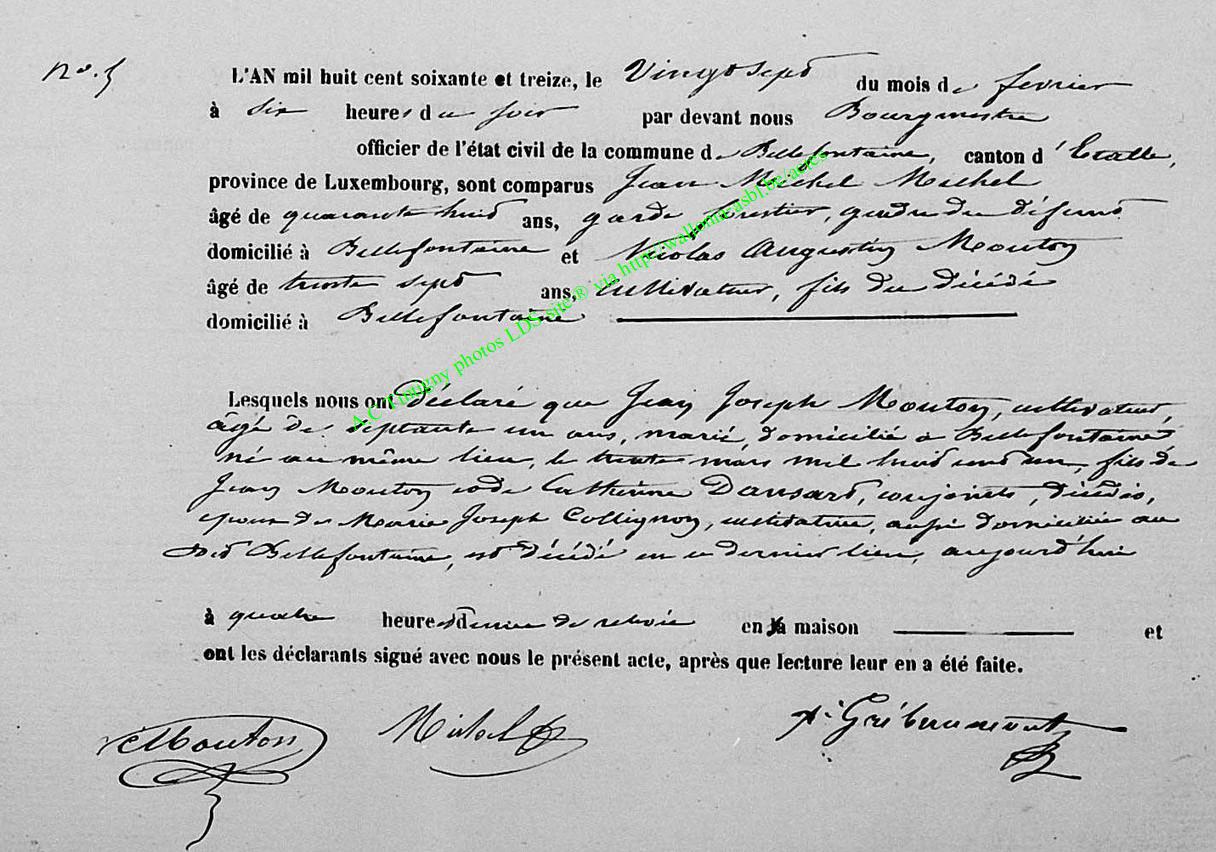 No. 5
L'AN mil huit cent soixante et treize, le Vingt sept du mois de fevrier
à six heures du soir par devant nous Bourgmestre
officier de l'état civil de la commune de Bellefontaine, canton d'Etalle,
province de Luxembourg, sont comparus Jean Michel Michel
âgé de quarante huit ans, garde forestier, gendre du défunt
domicilié à Bellefontaine et Nicolas Augustin Mouton
âgé de trente sept ans, cultivateur, fils du décédé
domicilié à Bellefontaine
Lesquels nous ont déclaré que Jean Joseph Mouton, cultivateur,
âgé de septante un ans, marié, domicilié à Bellefontaine
né au même lieu, le trente mars mil huit cent un, fils de
Jean Mouton et de Catherine Dansard, conjoints, décédés,
époux de Marie Joseph Collignon, cultivatrice, aussi domiciliée au
dit Bellefontaine, est décédé en ce dernier lieu, aujourd'hui
à quatre heures demie de relevée en sa maison et
ont les déclarants signé avec nous le présent acte, après que lecture leur en a été faite.
Mouton Michel Gribaumont
A.C Tintigny photos LDS site® via http://wallonia.asbl.be/actes